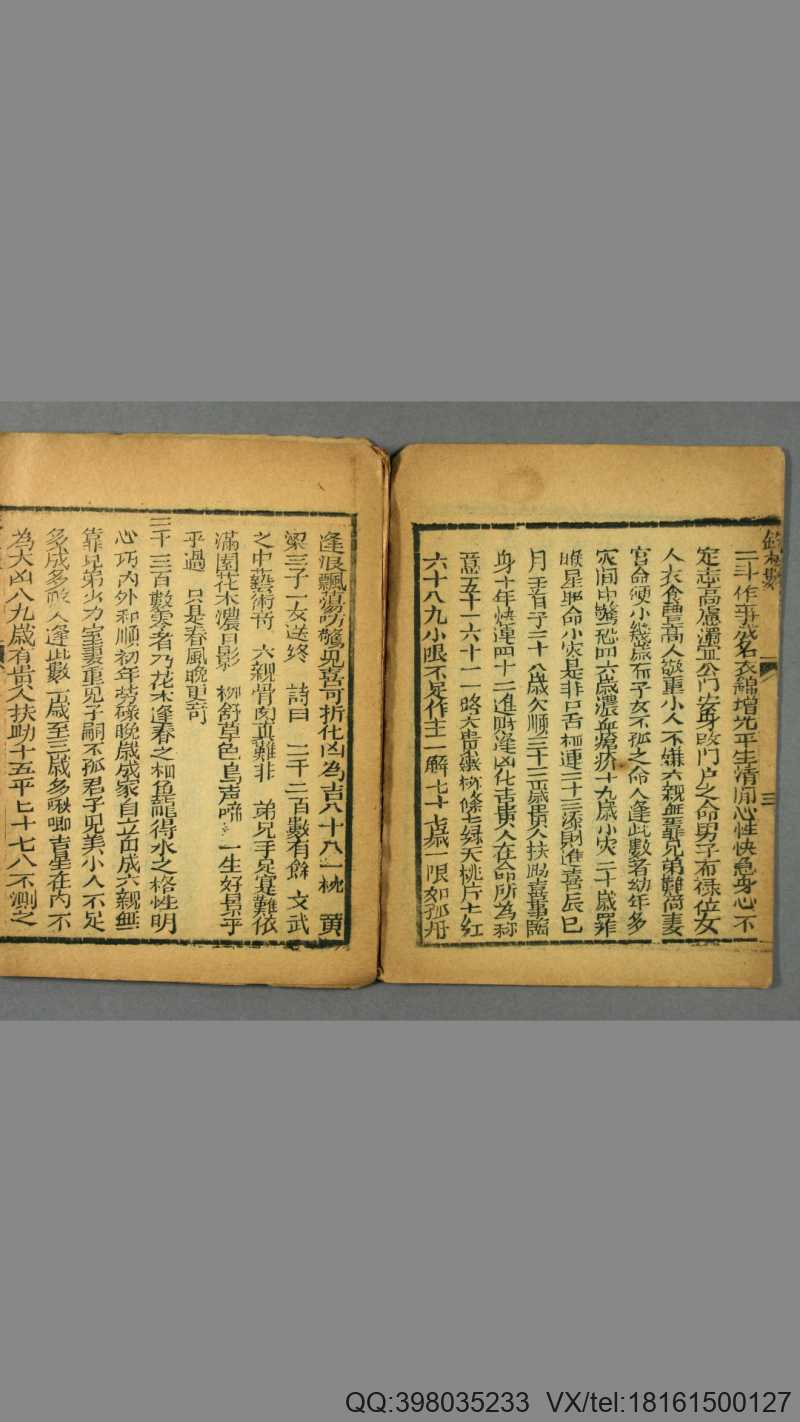 二斗作事成名衣綿增光平生清閒心性快急身心不
定志高慮濶宜公門安身改門戶之命男子有禄位女
人衣食豐高人敬重小人不嫌六親無靠兄弟難倚妻
宮命硬小幾歲有子女不孤之命人逢此數者幼年多
灾间中驚恐四六歲濃血瘡疥十九歲小灾二十歲羅
睺星聒命小灾是非口舌極連二十三添財進喜辰巳
月生貴子二十八歲欠順三十三歲貴人扶助喜事臨
身十年快運四十二進財逢凶化吉貴人在命所為称
意五十一六十二 略大貴 徐 綠天桃片七紅
六十八九小限不足作主一解七十七歲一限如孤舟
逢浪飄蕩防驚見喜可折化凶為吉八十八一枕 黄
梁三子一女送終 詩曰 二千二百數有餘 文武
之中藝術奇 六親骨肉真難非 弟兄手足寔難依
滿園花木濃日影 柳舒草色鳥声啼 一生好景乎
乎過 只是春風晚更奇
三千三百數零者乃花木逢春之柳魚龍得水之格性明
心巧内外和順初年劳碌晚歲成家自立由成六親無
靠兄弟少力室妻重見子嗣不孤君子見美小人不足
多成多敗人逢此數一歲至三歲多啾唧吉星在内不
為大凶八九歲有贵人扶助十五平七十七八不測之
QQ:398035233 VX/tel:18161500127